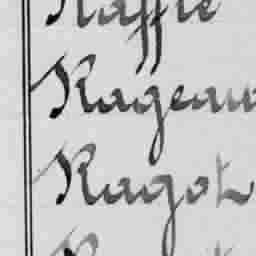 Raffle
Rageau
Ragot